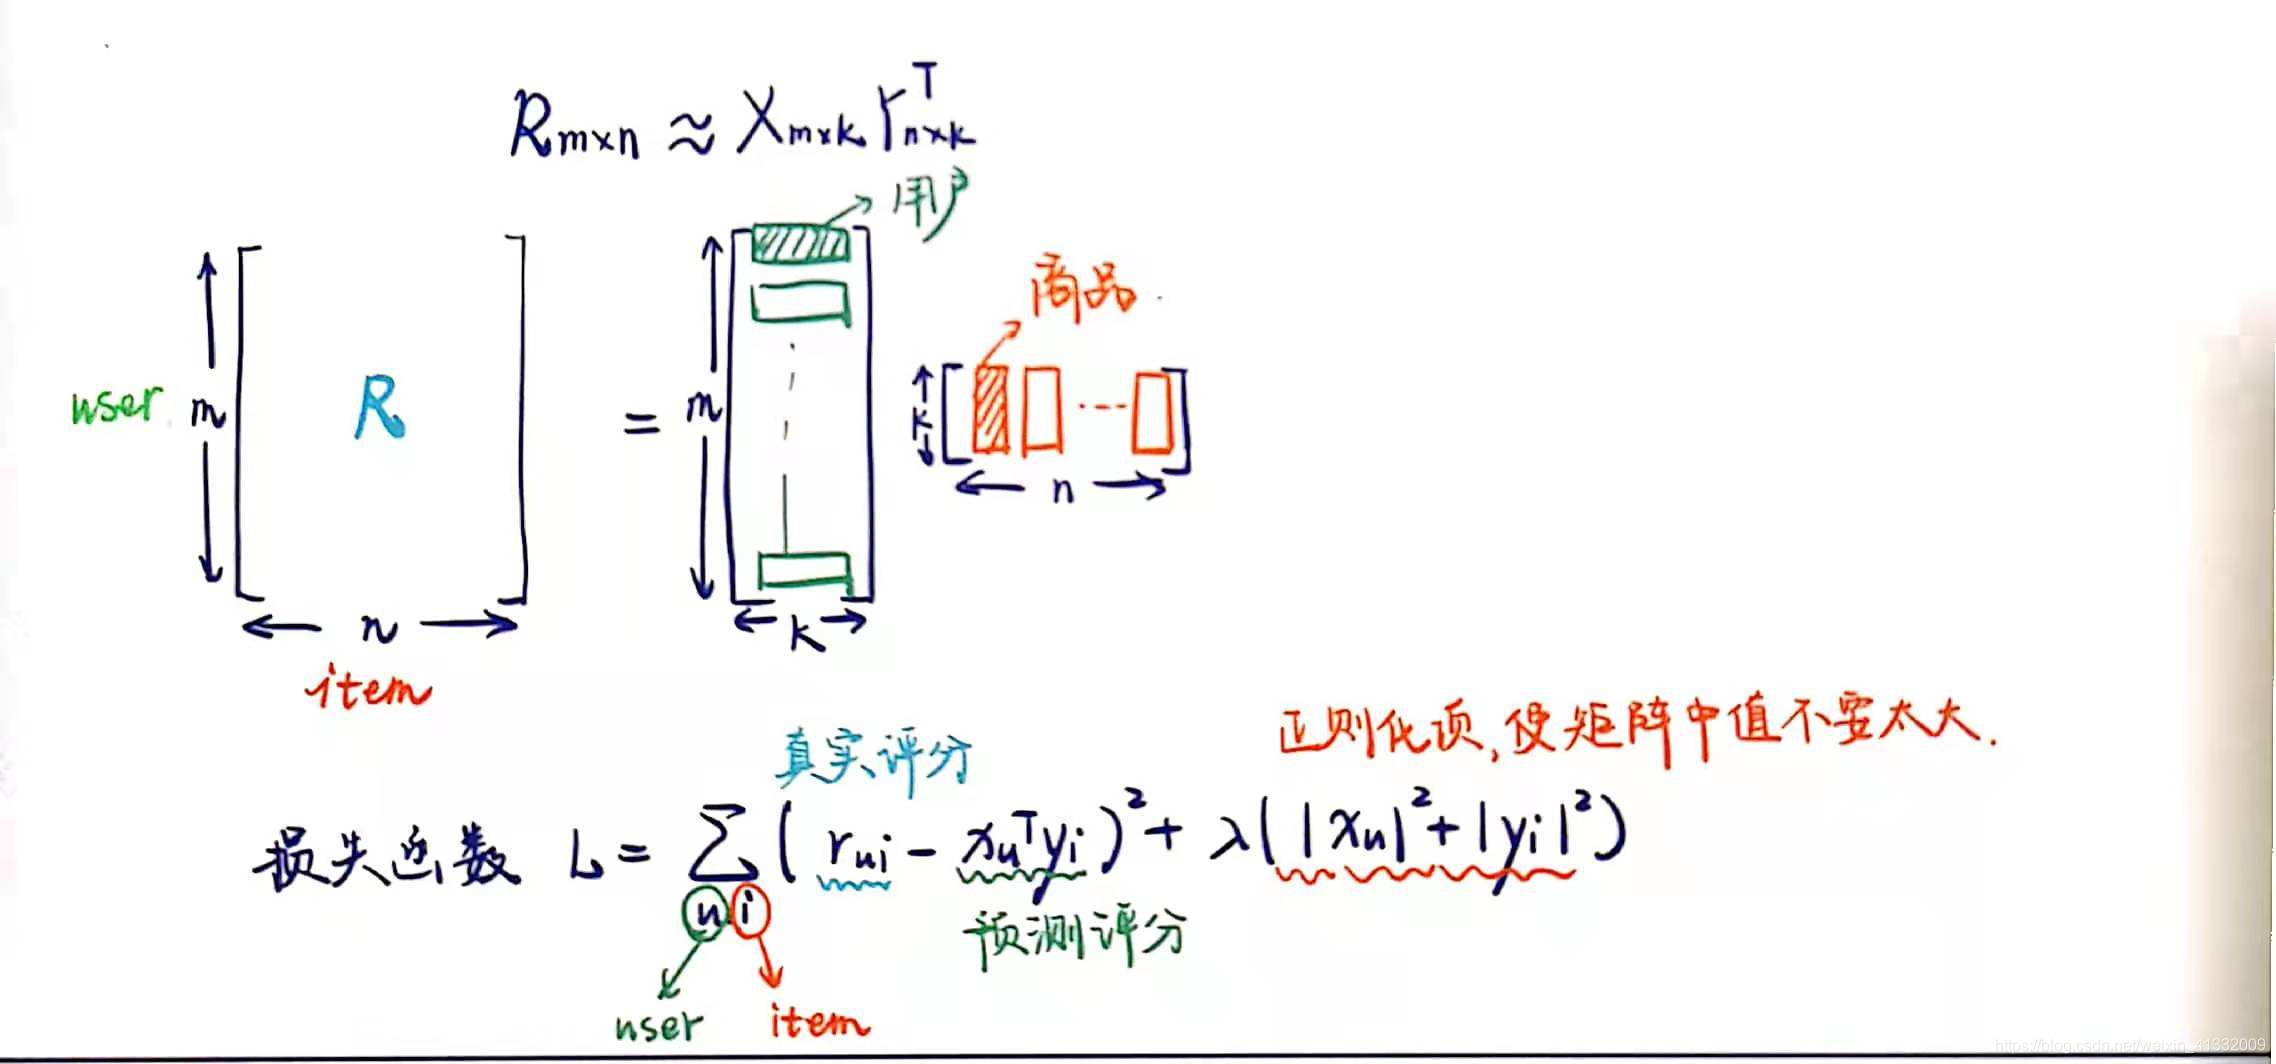 R m×n ≈ X m×k Y^T n×k
用户
商品
user m R = m k
n k n
item
正则化项,使矩阵中值不要太大.
真实评分
损失函数 L = ∑ ( r_ui - x_u^T y_i )^2 + λ( |x_u|^2 + |y_i|^2 )
u i
预测评分
user item
https://blog.csdn.net/weixin_41332009